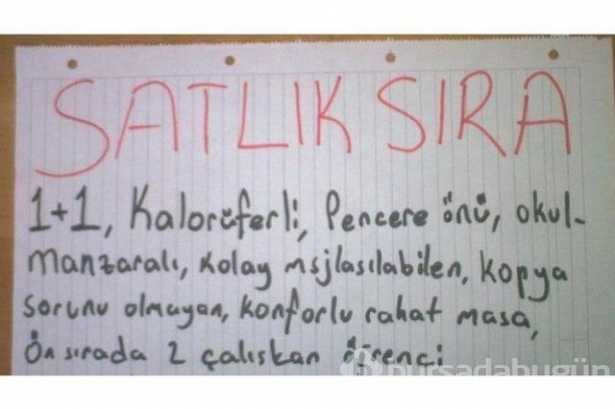 SATLIK SIRA
1+1, Kalorüferli, Pencere önü, okul-
manzaralı, Kolay msjlasılabilen, Kopya
sorunu olmayan, konforlu rahat masa,
Ön sırada 2 çalıskan öğrenci
bursadabugün